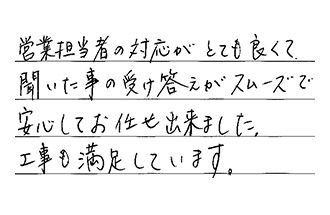 営業担当者の対応がとても良くて
聞いた事の受け答えがスムーズで
安心してお任せ出来ました。
工事も満足しています。